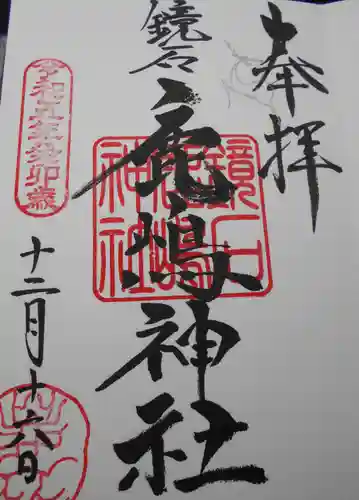 奉拝
鏡石
鹿嶋神社
鏡石鹿嶋神社
令和五年癸卯歳
十二月十六日